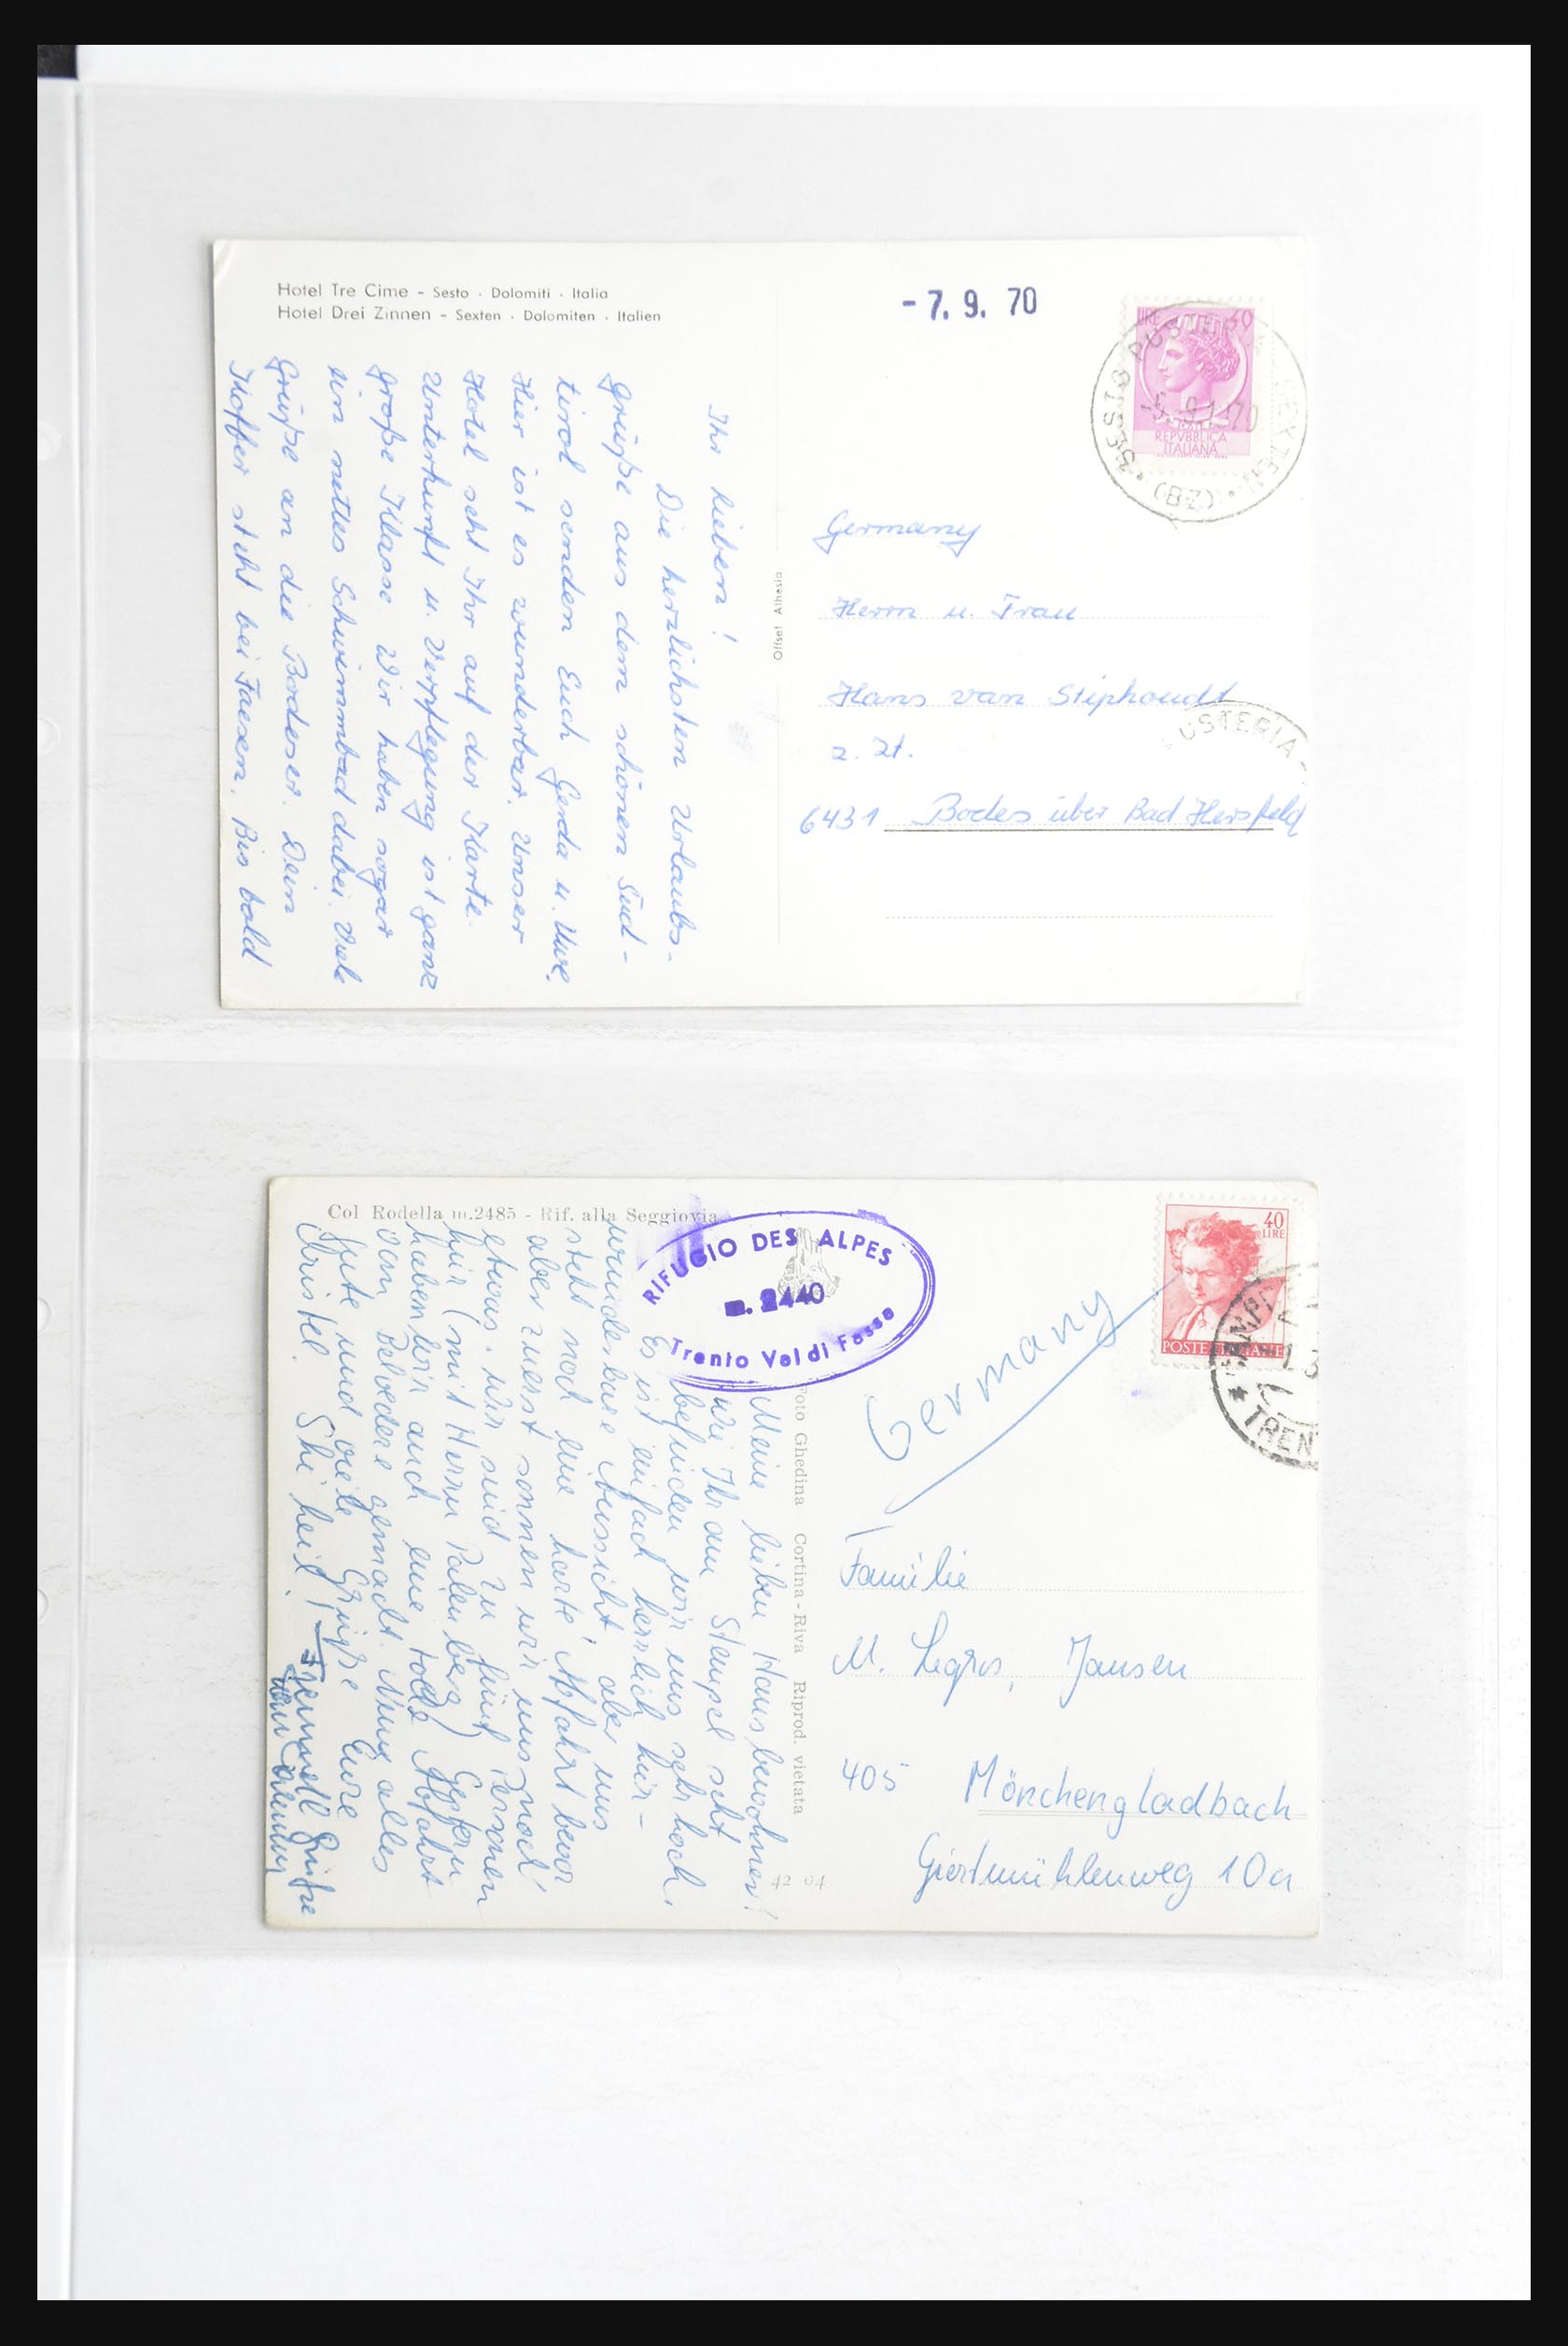 Hotel Tre Cime - Sesto · Dolomiti · Italia
Hotel Drei Zinnen - Sexten · Dolomiten · Italien
Ihr Lieben!
Die herzlichsten Urlaubs-
grüße aus dem schönen Süd-
tirol senden Euch Gerda u. Uwe.
Hier ist es wunderbar. Unser
Hotel seht Ihr auf der Karte.
Unterkunft u. Verpflegung ist ganz
große Klasse. Wir haben sogar
ein nettes Schwimmbad dabei. Viele
Grüße an die Bodeser. Dein
Koffer steht bei Faesen. Bis bald
Offset Athesia
- 7. 9. 70
LIRE
REPVBBLICA
ITALIANA
SESTO PUSTERIA SEXTEN
(BZ)
Germany
Herrn u. Frau
Hans van Stiphoudt
z. Zt.
USTERIA
6431 Bodes über Bad Hersfeld
Col Rodella m.2485 - Rif. alla Seggiovia
RIFUGIO DES ALPES
m. 2440
Trento Val di Fassa
Meine lieben Hausbewohner!
Wie Ihr am Stempel seht
befinden wir uns sehr hoch.
Es ist einfach herrlich hier -
wunderbare Aussicht, aber uns
steht noch eine harte Abfahrt bevor
aber zuerst sonnen wir uns noch
etwas. Wir sind zu fünf Personen
hier (mit Herrn Palenberg) Gestern
haben wir auch eine tolle Abfahrt
vom Belvedere gemacht. Nun alles
Gute und viele Grüße Eure
Christel. Ski heil!
Foto Ghedina Cortina - Riva Riprod. vietata
42 04
40
LIRE
POSTE ITALIANE
TREN
Germany
Familie
M. Legros, Jansen
405 Mönchengladbach
Giertmühlenweg 10a